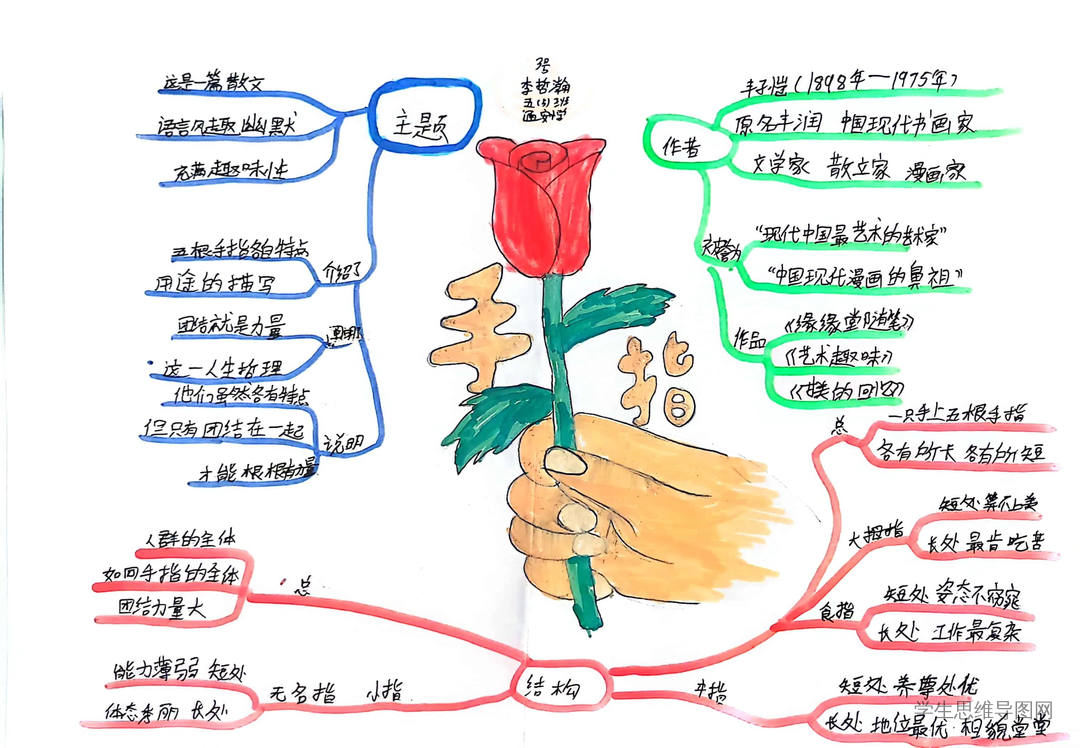 3号
李哲瀚
五(5)3班
主题
这是一篇散文
语言风趣幽默
充满趣味性
介绍了
五根手指各自特点
用途的描写
阐明
团结就是力量
这一人生哲理
说明
他们虽然各有特点
但只有团结在一起
才能根根有力量
手指
作者
丰子恺(1898年—1975年)
原名丰润 中国现代书画家
文学家 散立家 漫画家
被誉为
“现代中国最艺术的艺术家”
“中国现代漫画的鼻祖”
作品
《缘缘堂随笔》
《艺术趣味》
的回忆》
结构
总
一只手上五根手指
各有所长 各有所短
大拇指
短处 算不上美
长处 最肯吃苦
食指
短处 姿态不窈窕
长处 工作最复杂
中指
短处 养尊处优
长处 地位最优 相貌堂堂
无名指 小指
能力薄弱 短处
体态秀丽 长处
总
人群的全体
如同手指的全体
团结力量大
学生思维导图网